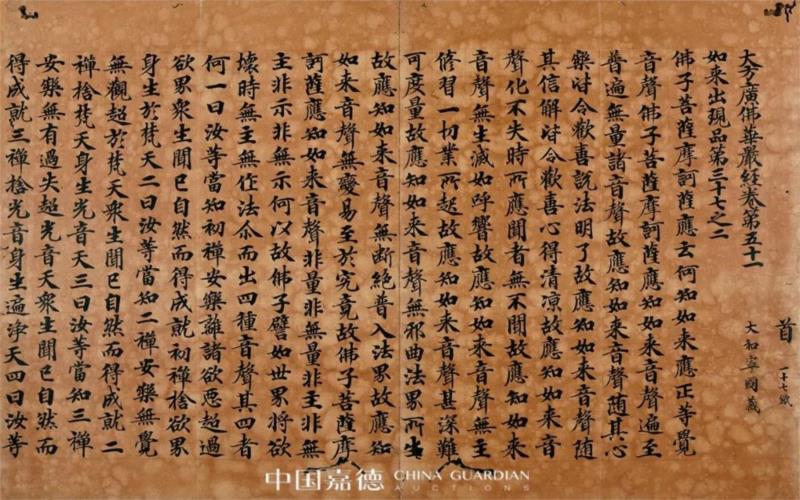 首
一十七紙
大和寧國藏
大方廣佛華嚴經卷第五十一
如来出現品第三十七之二
佛子菩薩摩訶薩應云何知如来應正等覺
音聲佛子菩薩摩訶薩應知如来音聲遍至
普遍無量諸音聲故應知如来音聲随其心
樂皆令歡喜說法明了故應知如来音聲随
其信解皆令歡喜心得清凉故應知如来音
聲化不失時所應聞者無不聞故應知如来
音聲無生滅如呼響故應知如来音聲無主
修習一切業所起故應知如来音聲甚深難
可度量故應知如来音聲無邪曲法界所生
故應知如来音聲無断絶普入法界故應知
如来音聲無變易至於究竟故佛子菩薩摩
訶薩應知如来音聲非量非無量非主非無
主非示非無示何以故佛子譬如世界將欲
壞時無主無作法尒而出四種音聲其四者
何一曰汝等當知初禪安樂離諸欲惡超過
欲界衆生聞已自然而得成就初禪捨欲界
身生於梵天二曰汝等當知二禪安樂無覺
無觀超於梵天衆生聞已自然而得成就二
禪捨梵天身生光音天三曰汝等當知三禪
安樂無有過失超光音天衆生聞已自然而
得成就三禪捨光音身生遍淨天四曰汝等
中国嘉德 CHINA GUARDIAN
AUCTIONS